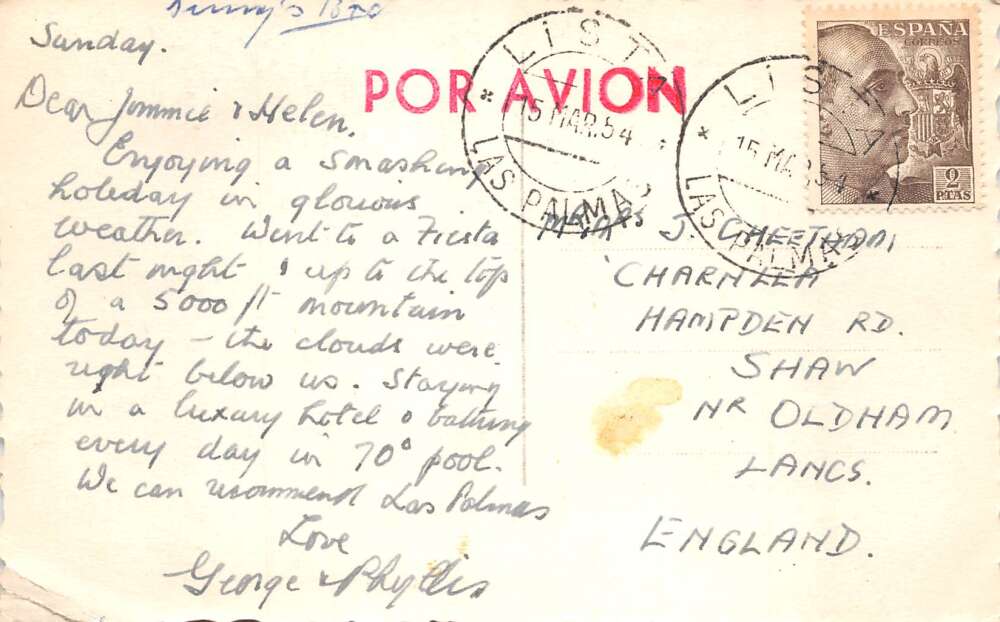 Sunday.
Dear Jimmie & Helen.
Enjoying a smashing
holiday in glorious
weather. Went to a Fiesta
last night & up to the top
of a 5000 ft mountain
today – the clouds were
right below us. Staying
in a luxury hotel & bathing
every day in 70° pool.
We can recommend Las Palmas
Love
George & Phyllis
POR AVION
LISTA
15 MAR.54
LAS PALMAS
LISTA
15 MAR.54
LAS PALMAS
ESPAÑA
CORREOS
2
PTAS
J. CHEETHAM,
'CHARNLEA
HAMPDEN RD.
SHAW
NR OLDHAM
LANCS.
ENGLAND.